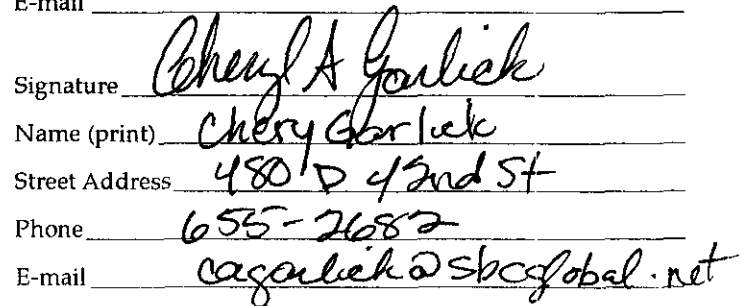 E-mail
Signature Cheryl A Garlick
Name (print) Chery Garlick
Street Address 480 D 42nd St
Phone 655-2682
E-mail cagarlick@sbcglobal.net